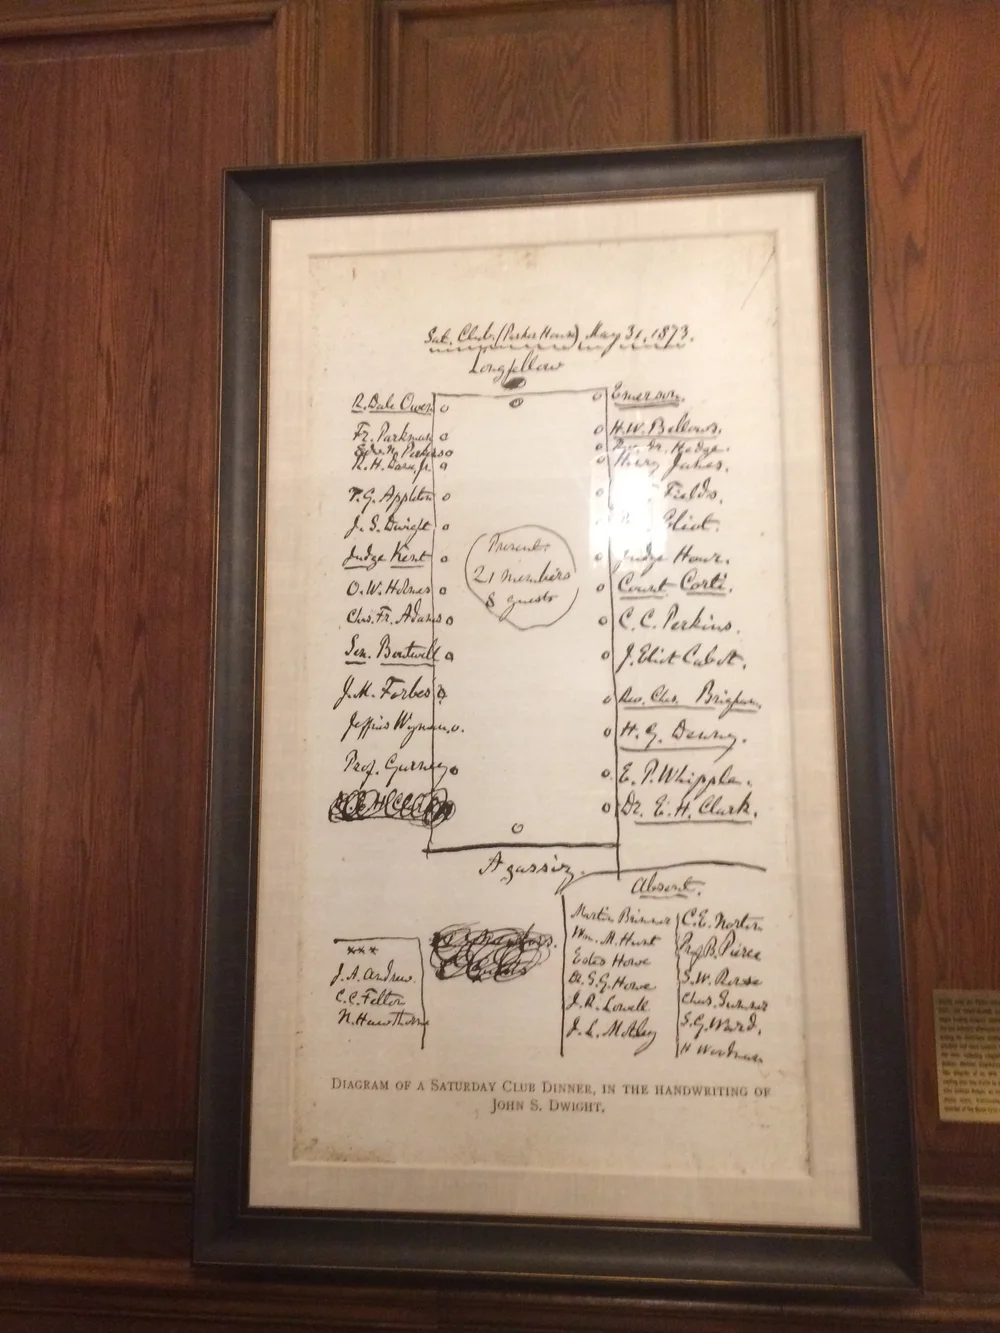 Sat. Club. (Parker House) May 31, 1873.
Longfellow
R. Dale Owen
Fr. Parkman
Edw. N. Perkins
R. H. Dana, Jr.
T. G. Appleton
J. S. Dwight
Judge Kent
O. W. Holmes
Chs. Fr. Adams
Sen. Boutwell
J. M. Forbes
Jeffries Wyman
Prof. Gurney
Emerson.
H. W. Bellows.
Rev. Dr. Hedge.
Henry James.
Fields.
Eliot.
Judge Hoar.
Count Corti.
C. C. Perkins.
J. Eliot Cabot.
Rev. Chs. Brigham.
H. G. Denny.
E. P. Whipple.
Dr. E. H. Clark.
Present.
21 members
8 guests
Agassiz.
Absent.
Martin Brimmer
Wm. M. Hunt
Estes Howe
Dr. S. G. Howe
J. R. Lowell
J. L. Motley
C. E. Norton
Prof. B. Peirce
Chas. Sumner
S. G. Ward.
H Woodman
***
J. A. Andrew.
C. C. Felton
N. Hawthorne
DIAGRAM OF A SATURDAY CLUB DINNER, IN THE HANDWRITING OF
JOHN S. DWIGHT.